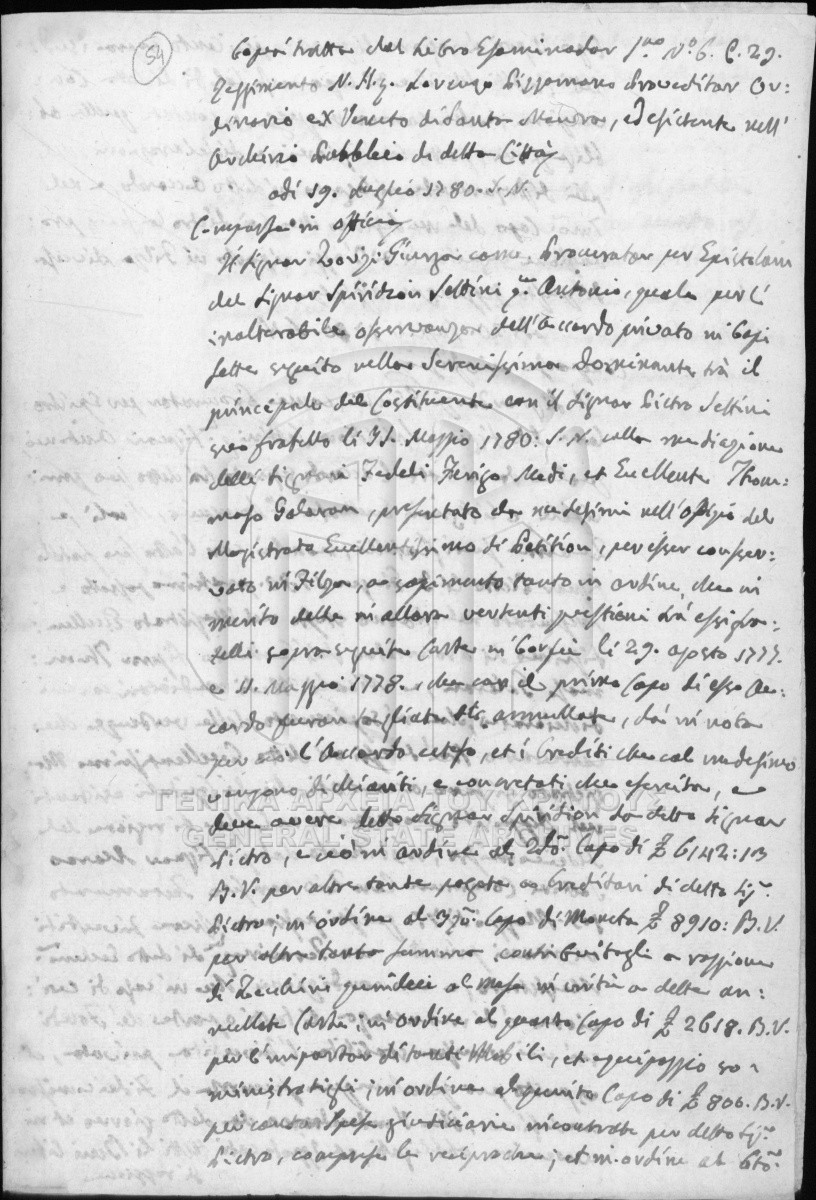 54
Copia tratta dal Libro Esaminador p.mo N.o 6. C. 29.
Reggimento N. H. q. Lorenzo Pizzamano Proveditor Or:
dinario ex Veneto di Santa Maura, ed esistente nell'
Archivio Pubblico di detta Città
adi 19. Luglio 1780. S. N.
Comparse in officio
Il Signor Zorzi Giunzo come Procurator per Epistolam
del Signor Spiridion Settini q.m Antonio, quale per l'
inalterabile osservanza dell'Accordo privato in Capi
sette seguito nella Serenissima Dominante trà il
principale di Costituente con il Signor Pietro Settini
suo fratello li 15. Maggio 1780: S. N. colla mediazione
delli Signori Fedeli Ferigo Medi, et Eccellente Thom:
maso Galavan, presentato da medesimi nell'Offizio del
Magistrato Eccellentissimo di Petition, per esser conser:
vato in Filza, a sopimento tanto in ordine, che in
merito delle in allora vertenti questioni trà essi fra:
telli sopra seguite Carte in Corfù li 29. Agosto 1777.
e 11. Maggio 1778. che con il primo Capo di esso Ac:
cordo furon tagliate et annullate, dà in nota
l'Accordo istesso, et i Crediti che col medesimo
vengono dichiariti, e concretati che esercita, e
deve avere detto Signor Spiridion da detto Signor
Pietro, e ciò in ordine al 2do. Capo di £ 6142:13
B. V. per altre tante pagate a Creditori di detto Sig.r
Pietro; in ordine al 3zo. Capo di Moneta £ 8910: B. V.
per altra tanta summa contribuitagli a raggione
di Zecchini quindeci al mese in virtù a delle an:
nullate Carte; in ordine al quarto Capo di £ 2618. B. V.
per l'importar di tanti Mobili, et equipaggio so:
ministratigli; in ordine al quinto Capo di £ 806. B. V.
per conto Spese giudiciarie incontrate per detto Sig.r
Pietro, comprese le reciproche; et in ordine al 6to.
ΓΕΝΙΚΑ ΑΡΧΕΙΑ ΤΟΥ ΚΡΑΤΟΥΣ
GENERAL STATE ARCHIVES